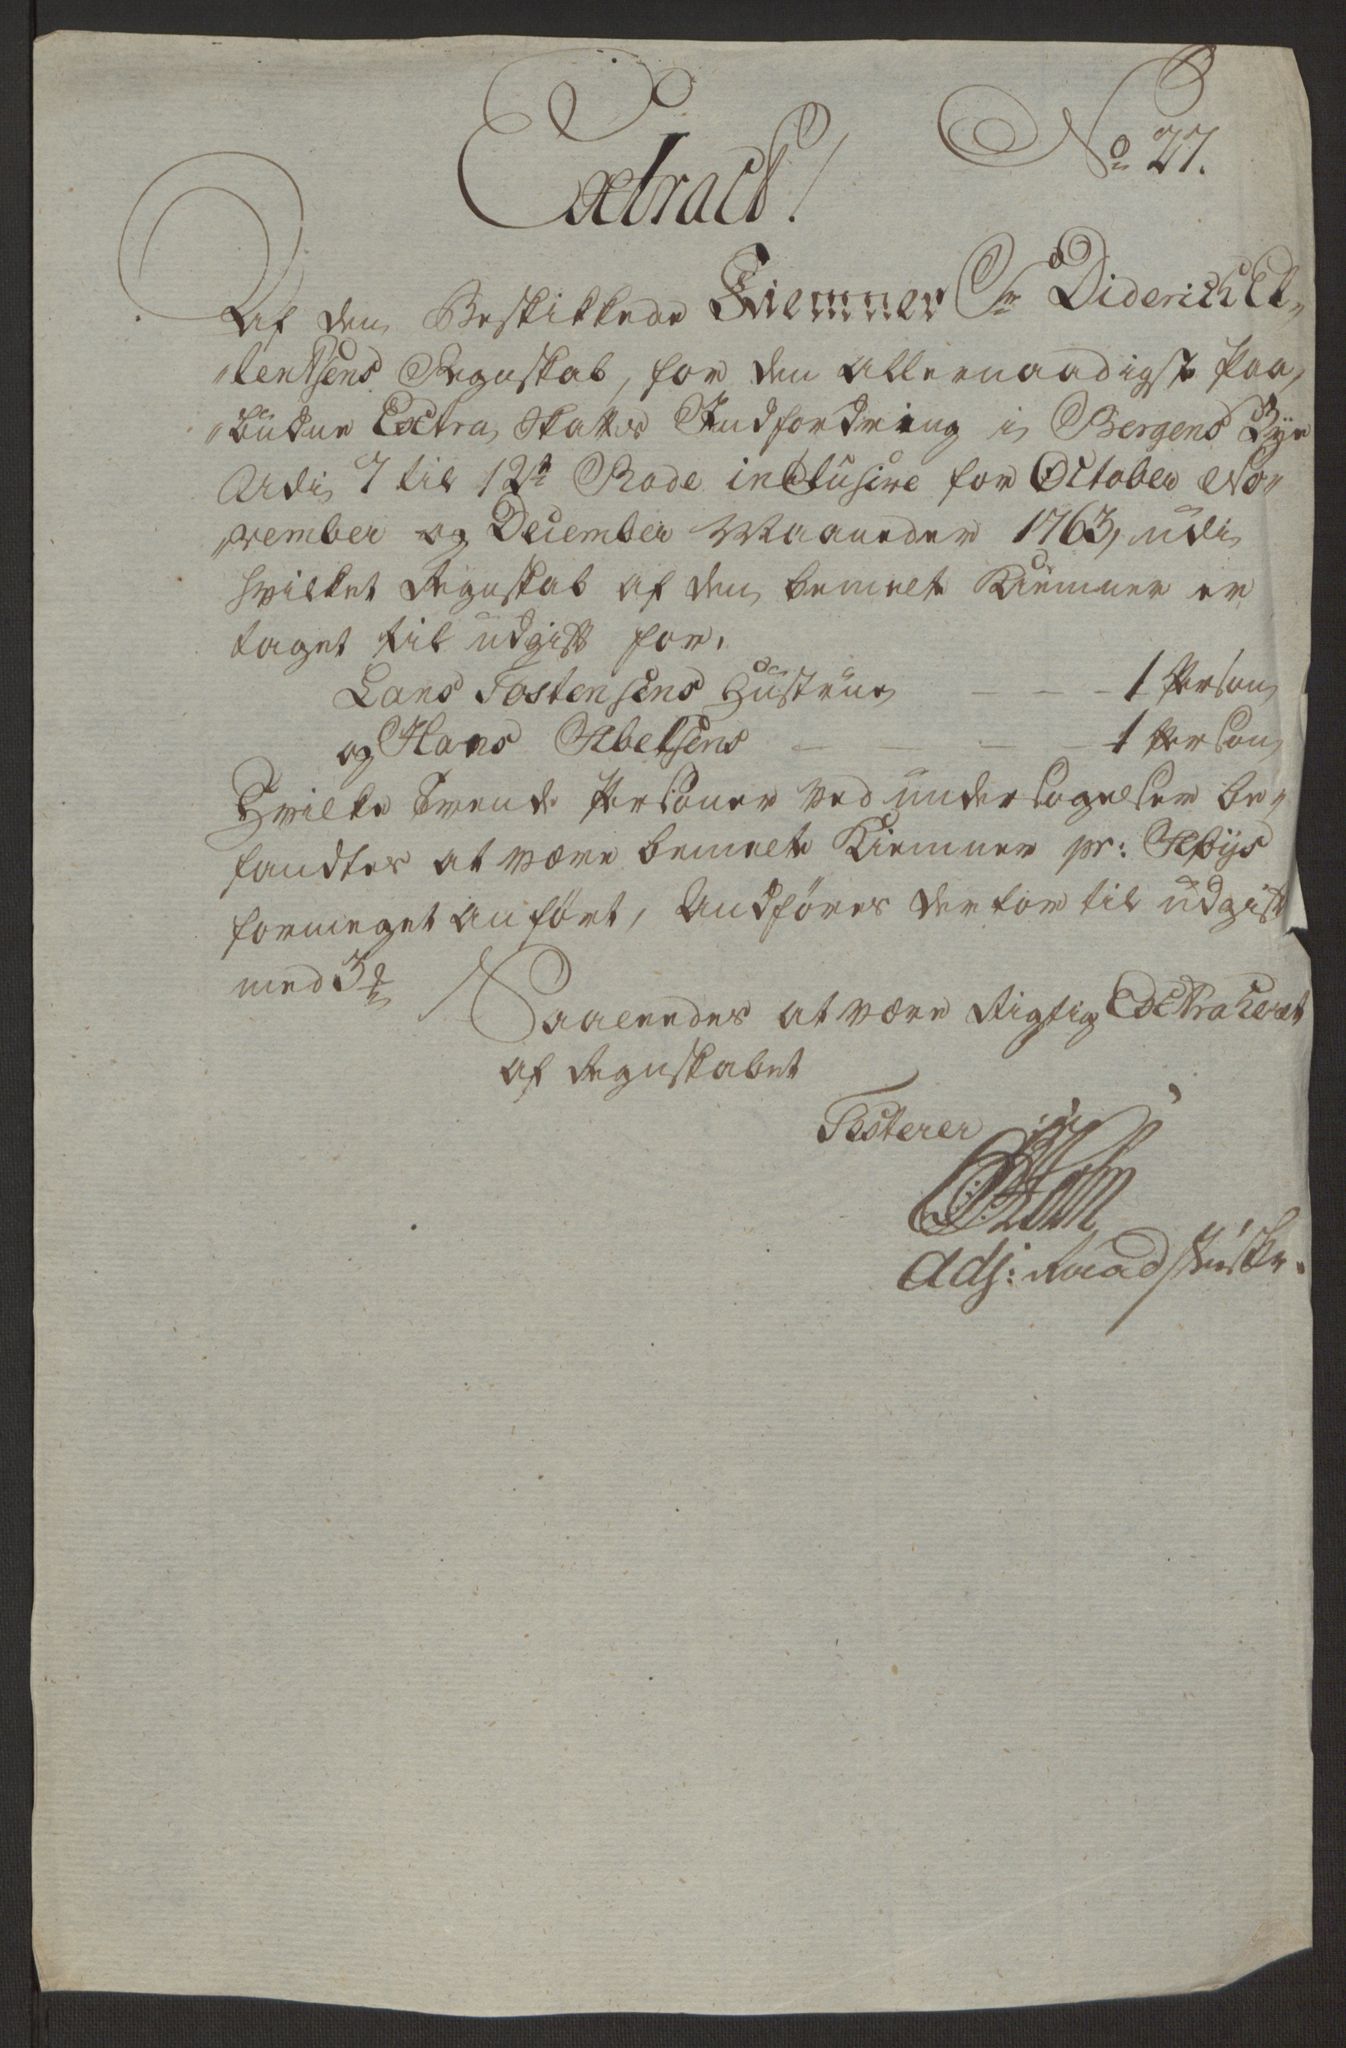 No 27.
Extract!
Af den Beskikkede Kiemner Sr Diderich El-
lertsens Regnskab, for den Allernaadigst Paa-
budne Extra Skattes Indfordring i Bergens Bye
Udi 7 til 12te Rode inclusive for October No-
vember og December Maaneder 1763, udi
hvilket Regnskab af den bemelte Kiemner er
taget til udgift for,
Lars Tostensens Hustrue - - - 1 Person
og Hans Abelsens - - - - 1 Person
Hvilke tvende Personer ved undersøgelsen be-
fandtes at være bemelte Kiemner pr: Avys
formeget anført, Andføres derfor til udgift
med 3 
Saaleedes at være Rigtig Extraheret
af Regnskabet
Testerer
Adj: Raadstueskr.